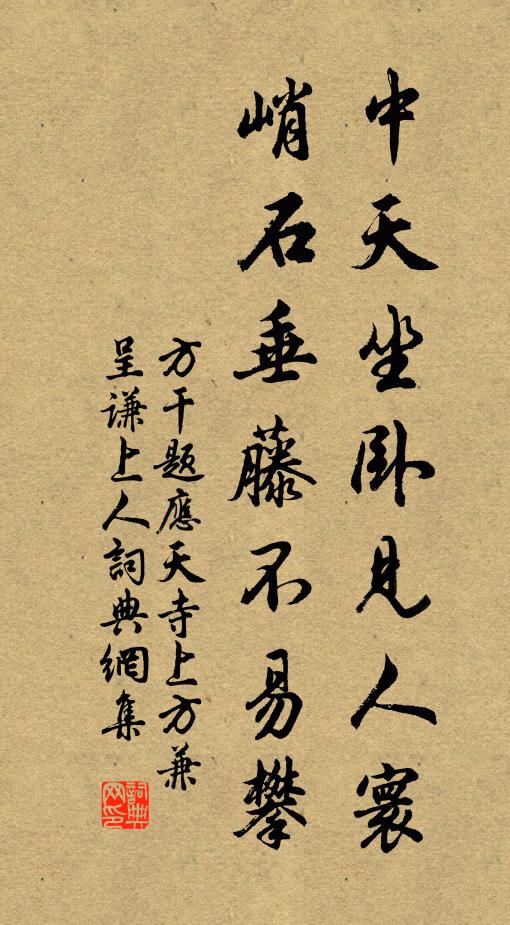 中天坐卧見人寰
峭石垂藤不易攀
方干题應天寺上方兼
呈谦上人詞典網集
詞典
网印